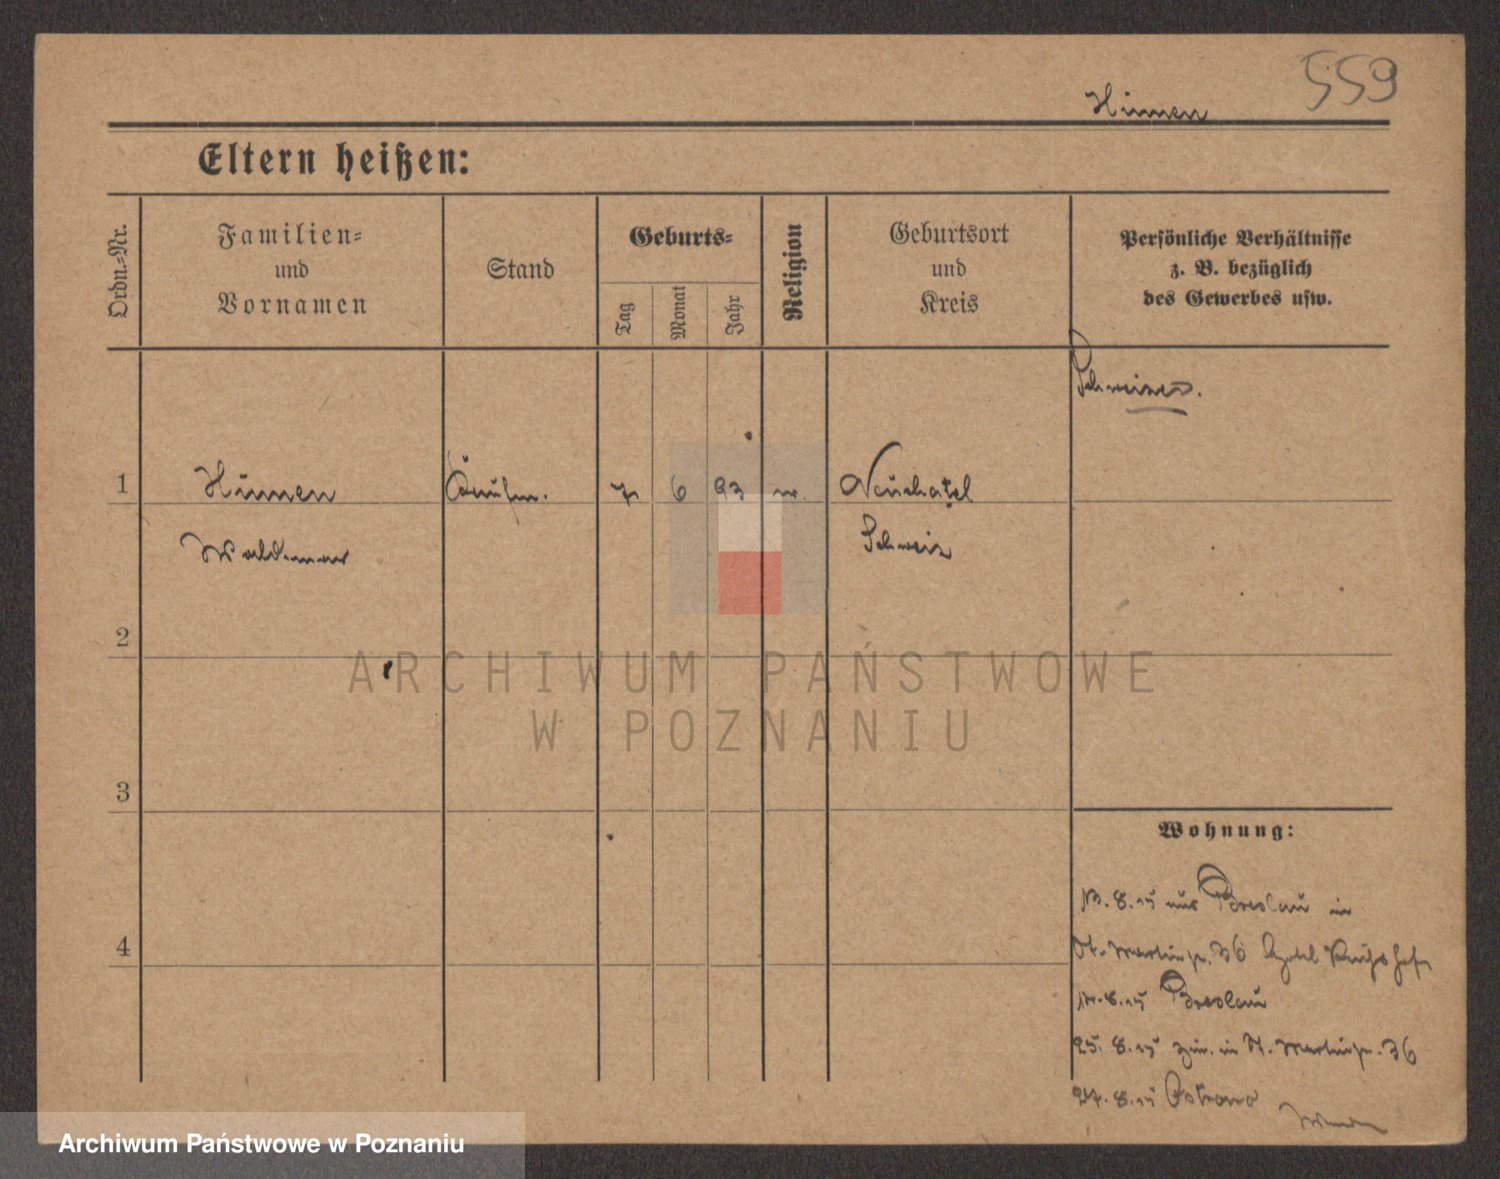 559
Hünen
Eltern heißen:
Ordn.-Nr.
Familien-
und
Vornamen
Stand
Geburts-
Tag
Monat
Jahr
Religion
Geburtsort
und
Kreis
Persönliche Verhältnisse
z. B. bezüglich
des Gewerbes usw.
Schweizer.
1
Hünen
Kaufm.
7
6
93
Neuchatel
Waldemar
Schweiz
2
ARCHIWUM PAŃSTWOWE
W POZNANIU
3
Wohnung:
13. 8. 15 aus Breslau in
St. Martinstr. 36 Hotel
4
14. 8. 15 Breslau
25. 8. 15 zur. in St. Martinstr. 36
27. 8. 15 Ostrowo
Archiwum Państwowe w Poznaniu